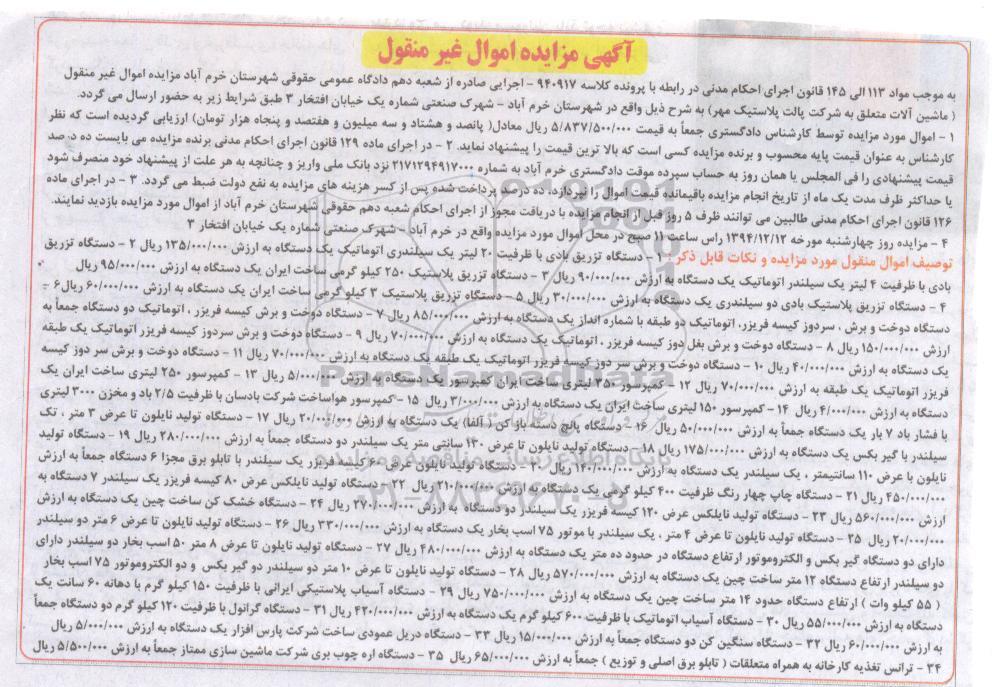 آگهی مزایده اموال غیر منقول
به موجب مواد ۱۱۳ الی ۱۴۵ قانون اجرای احکام مدنی در رابطه با پرونده کلاسه ۹۴۰۹۱۷ - اجرایی صادره از شعبه دهم دادگاه عمومی حقوقی شهرستان خرم آباد مزایده اموال غیر منقول
( ماشین آلات متعلق به شرکت پالت پلاستیک مهر) به شرح ذیل واقع در شهرستان خرم آباد - شهرک صنعتی شماره یک خیابان افتخار ۳ طبق شرایط زیر به حضور ارسال می گردد.
۱ - اموال مورد مزایده توسط کارشناس دادگستری جمعاً به قیمت ۵/۸۳۷/۵۰۰/۰۰۰ ریال معادل( پانصد و هشتاد و سه میلیون و هفتصد و پنجاه هزار تومان) ارزیابی گردیده است که نظر
کارشناس به عنوان قیمت پایه محسوب و برنده مزایده کسی است که بالا ترین قیمت را پیشنهاد نماید. ۲ - در اجرای ماده ۱۲۹ قانون اجرای احکام مدنی برنده مزایده می بایست ده د. صد
قیمت پیشنهادی را فی المجلس یا همان روز به حساب سپرده موقت دادگستری خرم آباد به شماره ۲۱۷۱۲۹۴۹۱۷۰۰۰ نزد بانک ملی واریز و چنانچه به هر علت از پیشنهاد خود منصرف شود
یا حداکثر ظرف مدت یک ماه از تاریخ انجام مزایده باقیمانده قیمت اموال را نپردازد، ده درصد پرداخت شده پس از کسر هزینه های مزایده به نفع دولت ضبط می گردد. ۳ - در اجرای ماده
۱۲۶ قانون اجرای احکام مدنی طالبین می توانند ظرف ۵ روز قبل از انجام مزایده با دریافت مجوز از اجرای احکام شعبه دهم حقوقی شهرستان خرم آباد از اموال مورد مزایده بازدید نمایند.
۴ - مزایده روز چهارشنبه مورخه ۱۳۹۴/۱۲/۱۲ راس ساعت ۱۱ صبح در محل اموال مورد مزایده واقع در خرم آباد - شهرک صنعتی شماره یک خیابان افتخار ۳
توصیف اموال منقول مورد مزایده و نکات قابل ذکر : ۱ - دستگاه تزریق بادی با ظرفیت ۲۰ لیتر یک سیلندری اتوماتیک یک دستگاه به ارزش ۱۳۵/۰۰۰/۰۰۰ ریال ۲ - دستگاه تزریق
بادی با ظرفیت ۴ لیتر یک سیلندر اتوماتیک یک دستگاه به ارزش ۹۰/۰۰۰/۰۰۰ ریال ۳ - دستگاه تزریق پلاستیک ۲۵۰ کیلو گرمی ساخت ایران یک دستگاه به ارزش ۹۵/۰۰۰/۰۰۰ ریال
۴ - دستگاه تزریق پلاستیک بادی دو سیلندری یک دستگاه به ارزش ۳۰/۰۰۰/۰۰۰ ریال ۵ - دستگاه تزریق پلاستیک ۳ کیلو گرمی ساخت ایران یک دستگاه به ارزش ۶۰/۰۰۰/۰۰۰ ریال ۶ -
دستگاه دوخت و برش ، سردوز کیسه فریزر، اتوماتیک دو طبقه با شماره انداز یک دستگاه به ارزش ۸۵/۰۰۰/۰۰۰ ریال ۷ - دستگاه دوخت و برش کیسه فریزر ، اتوماتیک دو دستگاه جمعاً به
ارزش ۱۵۰/۰۰۰/۰۰۰ ریال ۸ - دستگاه دوخت و برش بغل دوز کیسه فریزر ، اتوماتیک یک دستگاه به ارزش ۷۰/۰۰۰/۰۰۰ ریال ۹ - دستگاه دوخت و برش سردوز کیسه فریزر اتوماتیک یک طبقه
یک دستگاه به ارزش ۴۰/۰۰۰/۰۰۰ ریال ۱۰ - دستگاه دوخت و برش سر دوز کیسه فریزر اتوماتیک یک طبقه یک دستگاه به ارزش ۷۰/۰۰۰/۰۰۰ ریال ۱۱ - دستگاه دوخت و برش سر دوز کیسه
فریزر اتوماتیک یک طبقه به ارزش ۷۰/۰۰۰/۰۰۰ ریال ۱۲ - کمپرسور ۳۵۰ لیتری ساخت ایران کمپرسور یک دستگاه به ارزش ۵/۰۰۰/۰۰۰ ریال ۱۳ - کمپرسور ۲۵۰ لیتری ساخت ایران یک
دستگاه به ارزش ۴/۰۰۰/۰۰۰ ریال ۱۴ - کمپرسور ۱۵۰ لیتری ساخت ایران یک دستگاه به ارزش ۳/۰۰۰/۰۰۰ ریال ۱۵ - کمپرسور هواساخت شرکت بادسان با ظرفیت ۲/۵ باد و مخزن ۳۰۰۰ لیتری
با فشار باد ۷ بار یک دستگاه جمعاً به ارزش ۵۰/۰۰۰/۰۰۰ ریال ۱۶ - دستگاه پانچ دسته باز کن ( آلفا) یک دستگاه به ارزش ۲۰/۰۰۰/۰۰۰ ریال ۱۷ - دستگاه تولید نایلون تا عرض ۳ متر ، تک
سیلندر با گیر بکس یک دستگاه به ارزش ۱۷۵/۰۰۰/۰۰۰ ریال ۱۸ - دستگاه تولید نایلون تا عرض ۱۳۰ سانتی متر یک سیلندر دو دستگاه جمعاً به ارزش ۲۸۰/۰۰۰/۰۰۰ ریال ۱۹ - دستگاه تولید
نایلون با عرض ۱۱۰ سانتیمتر ، یک سیلندر یک دستگاه به ارزش ۱۴۰/۰۰۰/۰۰۰ ریال ۲۰ - دستگاه تولید نایلون عرض ۶۰ کیسه فریزر یک سیلندر با تابلو برق مجزا ۶ دستگاه جمعاً به ارزش
۴۵۰/۰۰۰/۰۰۰ ریال ۲۱ - دستگاه چاپ چهار رنگ ظرفیت ۴۰۰ کیلو گرمی یک دستگاه به ارزش ۲۱۰/۰۰۰/۰۰۰ ریال ۲۲ - دستگاه تولید نایلکس عرض ۸۰ کیسه فریزر یک سیلندر ۷ دستگاه به
ارزش ۵۶۰/۰۰۰/۰۰۰ ریال ۲۳ - دستگاه تولید نایلکس عرض ۱۲۰ کیسه فریزر یک سیلندر دو دستگاه به ارزش ۲۷۰/۰۰۰/۰۰۰ ریال ۲۴ - دستگاه خشک کن ساخت چین یک دستگاه به ارزش
۲۰/۰۰۰/۰۰۰ ریال ۲۵ - دستگاه تولید نایلون تا عرض ۴ متر ، یک سیلندر با موتور ۷۵ اسب بخار یک دستگاه به ارزش ۳۳۰/۰۰۰/۰۰۰ ریال ۲۶ - دستگاه تولید نایلون تا عرض ۶ متر دو سیلندر
دارای دو دستگاه گیر بکس و الکتروموتور ارتفاع دستگاه در حدود ده متر یک دستگاه به ارزش ۴۸۰/۰۰۰/۰۰۰ ریال ۲۷ - دستگاه تولید نایلون تا عرض ۸ متر ۵۰ اسب بخار دو سیلندر دارای
دو سیلندر ارتفاع دستگاه ۱۲ متر ساخت چین یک دستگاه به ارزش ۵۷۰/۰۰۰/۰۰۰ ریال ۲۸ - دستگاه تولید نایلون تا عرض ۱۰ متر دو سیلندر دو گیر بکس و دو الکتروموتور ۷۵ اسب بخار
( ۵۵ کیلو وات ) ارتفاع دستگاه حدود ۱۴ متر ساخت چین یک دستگاه به ارزش ۷۵۰/۰۰۰/۰۰۰ ریال ۲۹ - دستگاه آسیاب پلاستیکی ایرانی با ظرفیت ۱۵۰ کیلو گرم با دهانه ۶۰ سانت یک
دستگاه به ارزش ۵۵/۰۰۰/۰۰۰ ریال ۳۰ - دستگاه آسیاب اتوماتیک با ظرفیت ۶۰۰ کیلو گرم یک دستگاه به ارزش ۴۲۰/۰۰۰/۰۰۰ ریال ۳۱ - دستگاه گرانول با ظرفیت ۱۲۰ کیلو گرم دو دستگاه جمعاً
به ارزش ۶۰/۰۰۰/۰۰۰ ریال ۳۲ - دستگاه سنگین کن دو دستگاه جمعاً به ارزش ۱۵/۰۰۰/۰۰۰ ریال ۳۳ - دستگاه دریل عمودی ساخت شرکت پارس افزار یک دستگاه به ارزش ۵/۰۰۰/۰۰۰ ریال
۳۴ - ترانس تغذیه کارخانه به همراه متعلقات ( تابلو برق اصلی و توزیع ) جمعاً به ارزش ۶۵/۰۰۰/۰۰۰ ریال ۳۵ - دستگاه اره چوب بری شرکت ماشین سازی ممتاز جمعاً به ارزش ۵/۵۰۰/۰۰۰ ریال
ParsNamadData